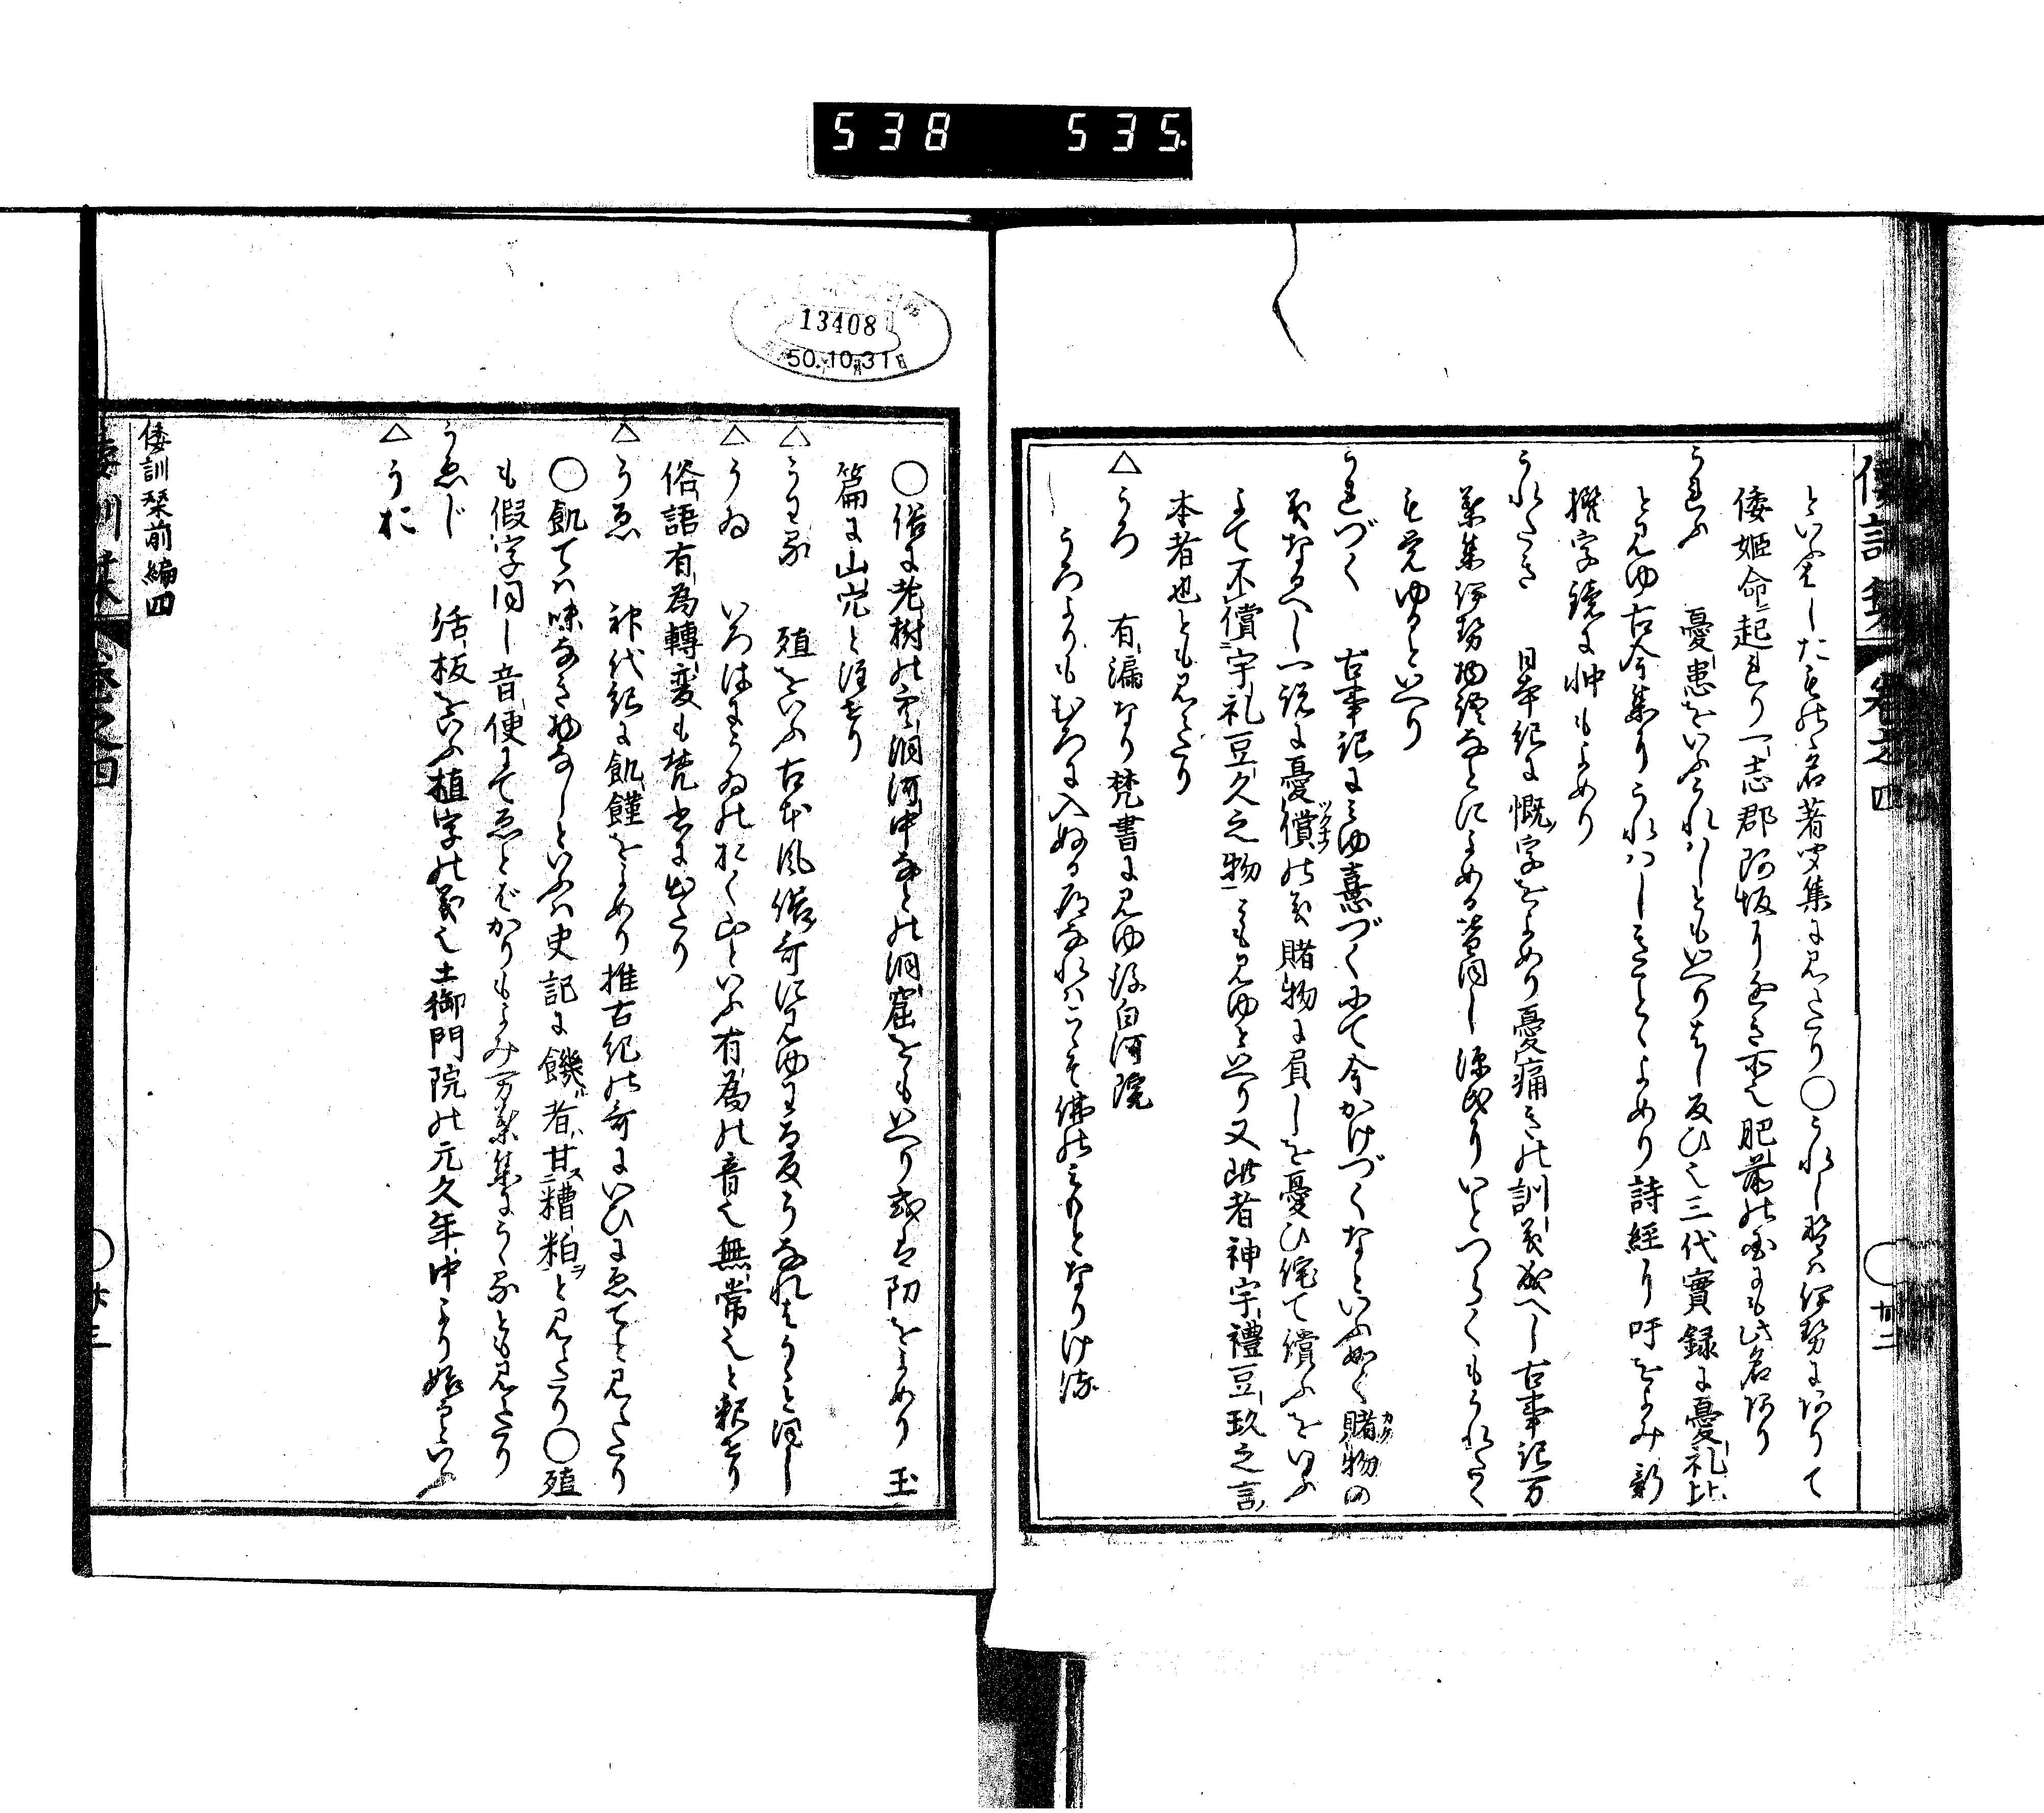 538 535
倭訓栞 卷之四 卅二
といふをしたるの名著聞集に見えたり〇うれし野は伊勢にありて
倭姫命に起れり一志郡阿坂に近き所也肥前の國にも此名あり
うれふ 憂患をいふうれはしともいへりはし反ひ也三代實録に憂礼比
と見ゆ古今集にうれはしきことゝよめり詩經に吁をよみ新
撰字鏡に忡もよめり
うれたき 日本紀に慨字をよめり憂痛きの訓義成へし古事記万
葉集伊勢物語などによめる皆同し源氏にいとつらくもうれたく
も覚ゆるといへり
うれづく 古事記にみゆ憙づくにて今かけづくなといふ如く賭物の
義なるへし一説に憂償の義賭物に負しを憂ひ侘て償ふをいふ
よて不償宇礼豆久之物ともみゆといへり又此者神宇禮豆玖之言
本者也とも見えたり
△うろ 有漏なり梵書に見ゆ後白河院
うろよりもむろに入ぬる道なれはこれそ佛のみもとなりける
13408
50.10.31
〇俗に老樹のうろ洞河中などの洞窟をもいへり或は阞をよめり玉
篇に山穴と注せり
△うわる 殖をいふ古本風俗哥に見ゆわる反うなれはうゝと同し
△うゐ いろはにうゐのおく山といふ有為の音也無常也と釈せり
俗語有為轉変も梵書に出たり
△うゑ 神代紀に飢饉をよめり推古紀の哥にいひにゑてと見えたり
〇飢ては味なき物なしといふは史記に饑者甘糟粕と見えたり〇殖
も假字同し音便にてゑとばかりもよみ万葉集にうゝるとも見えたり
うゑじ 活板をいふ植字の義也土御門院の元久年中より始るといふ
△うお
倭訓栞前編四
倭訓栞 卷之四 卅三